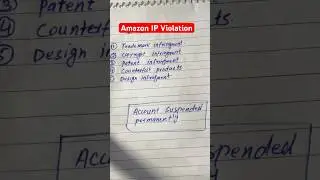 3 Patent
4 Counterf
5 Design In
Amazon IP Violation
1 Trademark infringment
2 Copyright infringment
3 Patent infringment
4 Counterfeit products
5 Design infringment
Account Suspended
permanently
Accou
spended
tly